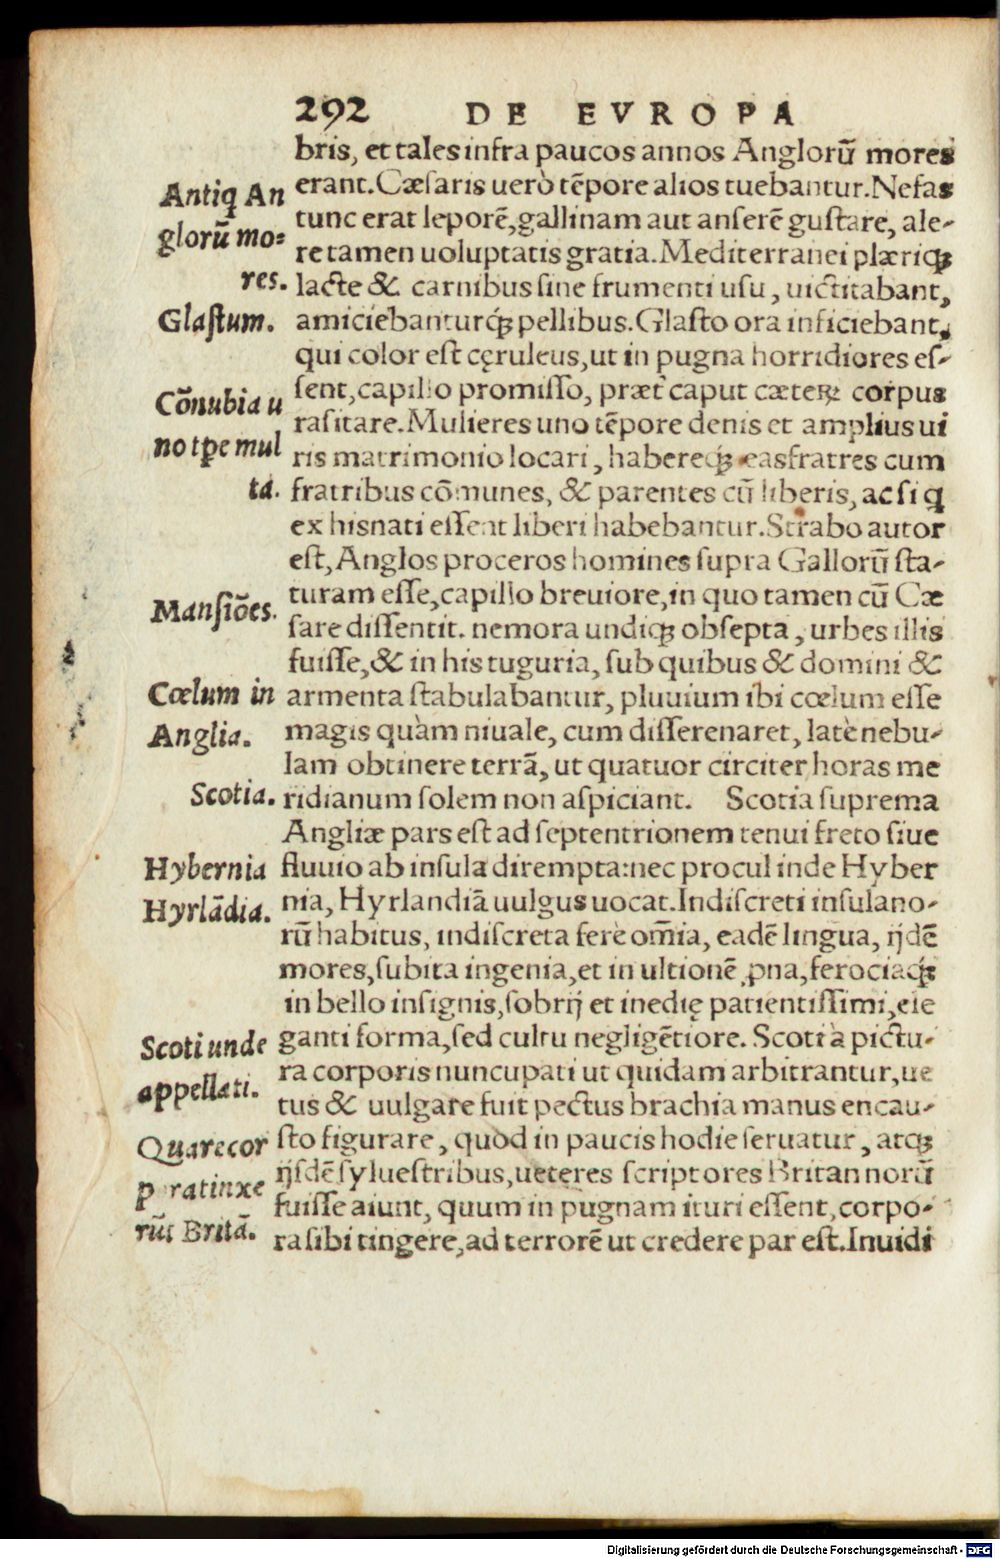 292 DE EVROPA
bris, et tales infra paucos annos Anglorũ mores
erant. Cæſaris uerò tẽpore alios tuebantur. Nefas
tunc erat leporẽ, gallinam aut anſerẽ guſtare, ale-
re tamen uoluptatis gratia. Mediterranei plæriqꝫ
lacte & carnibus ſine frumenti uſu, uictitabant,
amiciebanturqꝫ pellibus. Glaſto ora inficiebant,
qui color eſt cęruleus, ut in pugna horridiores eſ-
ſent, capillo promiſſo, præt̉ caput cæteꝝ corpus
raſitare. Mulieres uno tẽpore denis et amplius ui
ris matrimonio locari, habereqꝫ eas fratres cum
fratribus cõmunes, & parentes cũ liberis, ac ſi q̃
ex his nati eſſent liberi habebantur. Strabo autor
eſt, Anglos proceros homines ſupra Gallorũ ſta-
turam eſſe, capillo breuiore, in quo tamen cũ Cæ
ſare diſſentit. nemora undiqꝫ obſepta, urbes illis
fuiſſe, & in his tuguria, ſub quibus & domini &
armenta ſtabulabantur, pluuium ibi cœlum eſſe
magis quàm niuale, cum diſſerenaret, latè nebu-
lam obtinere terrã, ut quatuor circiter horas me
ridianum ſolem non aſpiciant. Scotia ſuprema
Angliæ pars eſt ad ſeptentrionem tenui freto ſiue
fluuio ab inſula dirempta: nec procul inde Hyber
nia, Hyrlandiã uulgus uocat. Indiſcreti inſulano-
rũ habitus, indiſcreta ferè om̃ia, eadẽ lingua, ijdẽ
mores, ſubita ingenia, et in ultionẽ ꝓna, ferociaqꝫ
in bello inſignis, ſobrij et inedię patientiſſimi, ele
ganti forma, ſed cultu negligẽtiore. Scoti à pictu-
ra corporis nuncupati ut quidam arbitrantur, ue
tus & uulgare fuit pectus brachia manus encau-
ſto figurare, quod in paucis hodie ſeruatur, atqꝫ
ijſdẽ ſylueſtribus, ueteres ſcriptores Britannorũ
fuiſſe aiunt, quum in pugnam ituri eſſent, corpo-
ra ſibi tingere, ad terrorẽ ut credere par eſt. Inuidi
Antiq An
glorũ mo-
res.
Glaſtum.
Cõnubia u
no tp̃e mul
ta.
Manſiões.
Cœlum in
Anglia.
Scotia.
Hybernia
Hyrlãdia.
Scoti unde
appellati.
Quare cor
rũt Britã.
Digitalisierung gefördert durch die Deutsche Forschungsgemeinschaft - DFG